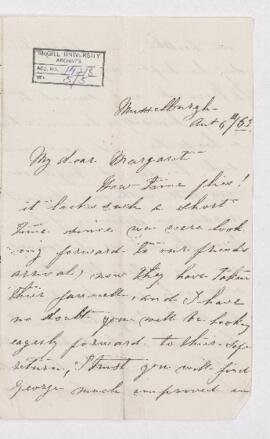 McGILL UNIVERSITY
ARCHIVES
ACC. NO.
REF.
Musselburgh
My dear Margaret
How time flies!
it looks such a short
time since we were look
ing forward to our friends
arrival, now they have taken
their farewell, and I have
no doubt you will be looking
eagerly forward to their safe
return, I trust you will find
George much improved in